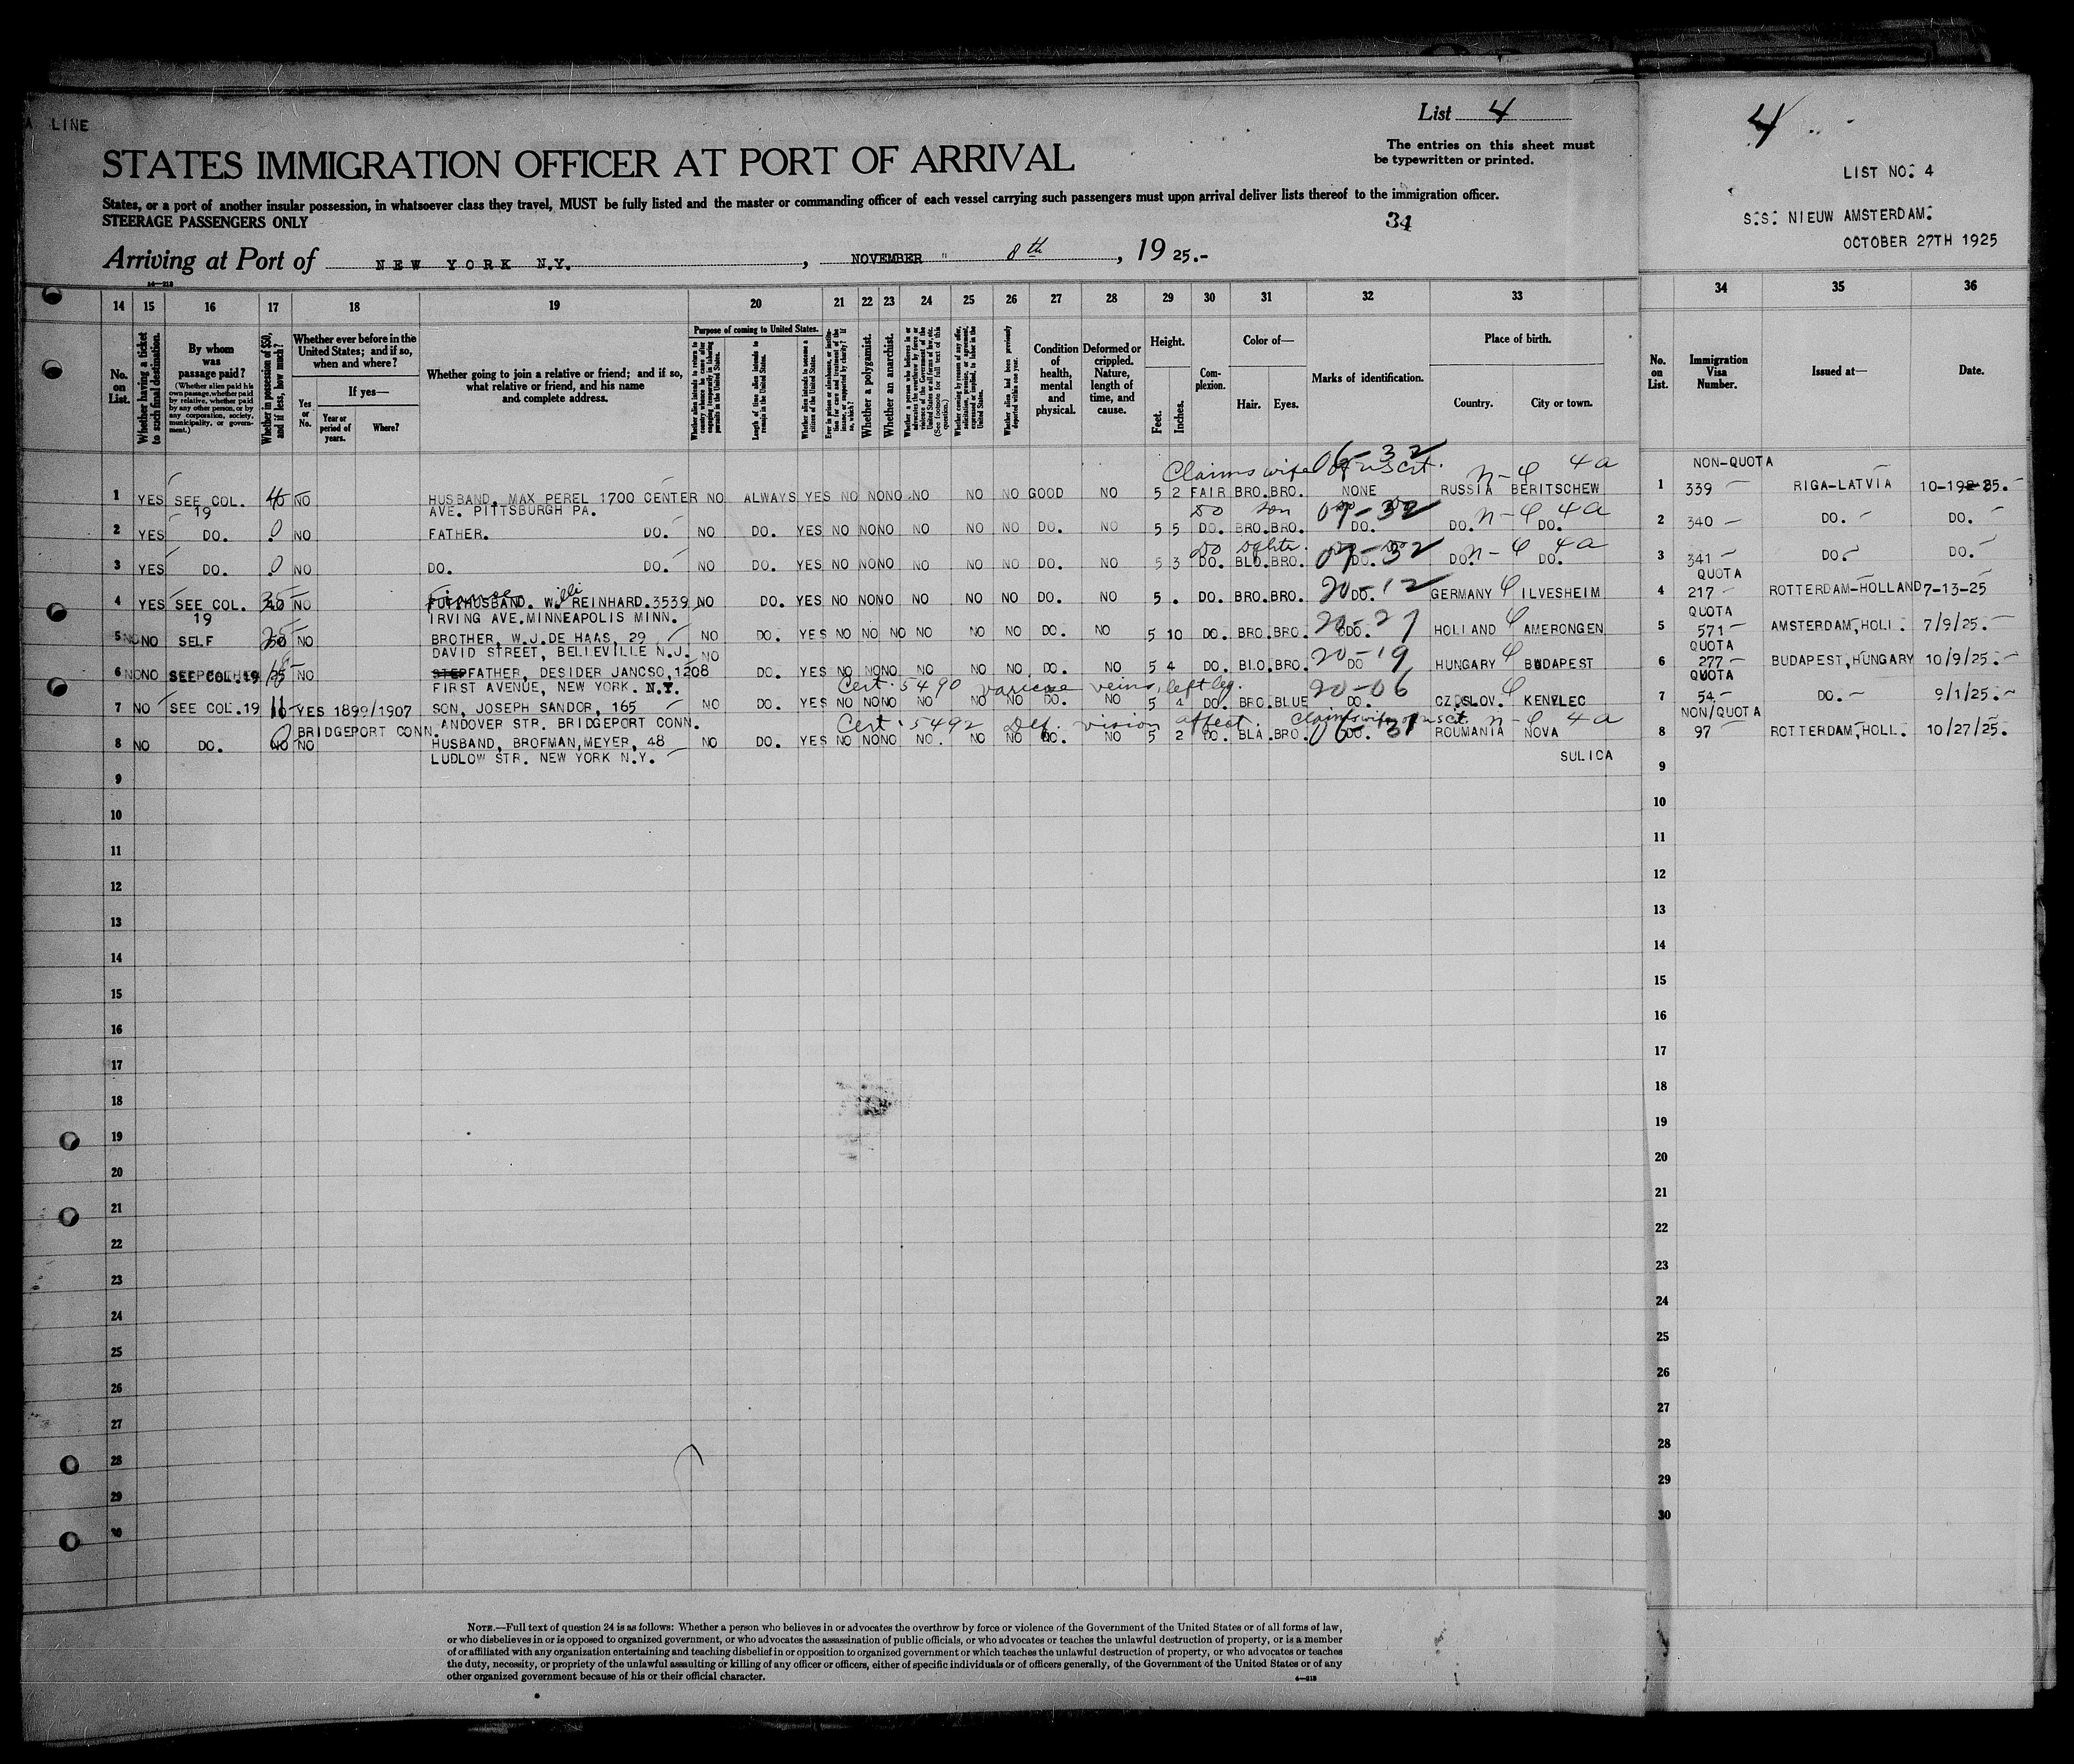 A LINE
List 4
The entries on this sheet must
be typewritten or printed.
STATES IMMIGRATION OFFICER AT PORT OF ARRIVAL
States, or a port of another insular possession, in whatsoever class they travel, MUST be fully listed and the master or commanding officer of each vessel carrying such passengers must upon arrival deliver lists thereof to the immigration officer.
STEERAGE PASSENGERS ONLY
34
Arriving at Port of NEW YORK N.Y. , NOVEMBER " 8th , 1925.-
4
LIST NO: 4
S:S: NIEUW AMSTERDAM:
OCTOBER 27TH 1925
14 15 16 17 18 19 20 21 22 23 24 25 26 27 28 29 30 31 32 33 34 35 36
No. on List.
Whether having a ticket to such final destination.
By whom was passage paid?
(Whether alien paid his own passage, whether paid by relative, whether paid by any other person, or by any corporation, society, municipality, or government.)
Whether in possession of $50, and if less, how much?
Whether ever before in the United States; and if so, when and where?
If yes—
Yes or No.
Year or period of years.
Where?
Whether going to join a relative or friend; and if so, what relative or friend, and his name and complete address.
Purpose of coming to United States.
Length of time alien intends to remain in the United States.
Whether alien intends to become a citizen of the United States.
Whether a polygamist.
Whether an anarchist.
Condition of health, mental and physical.
Deformed or crippled. Nature, length of time, and cause.
Height.
Feet.
Inches.
Complexion.
Color of—
Hair.
Eyes.
Marks of identification.
Place of birth.
Country.
City or town.
No. on List.
Immigration Visa Number.
Issued at—
Date.
Claims wife of us cit. 06-32 n-q 4a
NON-QUOTA
1 YES SEE COL. 19 NO HUSBAND, MAX PEREL 1700 CENTER NO ALWAYS YES NO NONO NO NO NO GOOD NO 5 2 FAIR BRO. BRO. NONE RUSSIA BERITSCHEW 1 339 RIGA-LATVIA
AVE. PITTSBURGH PA.
Do son 07-32 n-q 4a
2 YES DO. 0 NO FATHER. DO. NO DO. YES NO NONO NO NO NO DO. NO 5 5 DO. BRO. BRO. DO. DO. DO. 2 340 DO. DO.
Do Dghtr. 07-32 n-q 4a
3 YES DO. 0 NO DO. DO. NO DO. YES NO NONO NO NO NO DO. NO 5 3 DO. BLO. BRO. DO. DO. DO. 3 341 DO. DO.
QUOTA
4 YES SEE COL. 19 NO HUSBAND. REINHARD. 3539 NO DO. YES NO NONO NO NO NO DO. NO 5 . DO. BRO. BRO. 20-12 DO. GERMANY ILVESHEIM 4 217 ROTTERDAM-HOLLAND 7-13-25
IRVING AVE. MINNEAPOLIS MINN.
QUOTA
5 NO SELF NO BROTHER, W.J. DE HAAS, 29 NO DO. YES NO NO NO NO NO NO DO. NO 5 10 DO. BRO. BRO. 20-27 DO. HOLLAND AMERONGEN 5 571 AMSTERDAM, HOLL. 7/9/25.
DAVID STREET, BELLEVILLE N.J.
QUOTA
6 NO SEE COL. 19 NO STEPFATHER, DESIDER JANCSO, 1208 NO DO. YES NO NONO NO NO NO DO. NO 5 4 DO. BLO. BRO. 20-19 DO HUNGARY BUDAPEST 6 277 BUDAPEST, HUNGARY 10/9/25.
FIRST AVENUE, NEW YORK. N.Y.
Cert. 5490 varicose veins, left leg.
QUOTA
7 NO SEE COL. 19 YES 1899/1907 SON, JOSEPH SANDOR, 165 NO DO. YES NO NONO NO NO NO DO. NO 5 4 DO. BRO. BLUE 20-06 DO. CZ.SLOV. KENYLEC 7 54 DO. 9/1/25.
BRIDGEPORT CONN. ANDOVER STR. BRIDGEPORT CONN.
Cert. 5492 Def. vision affect. Claims wife of us cit. n-q 4a
NON/QUOTA
8 NO DO. NO HUSBAND, BROFMAN, MEYER, 48 NO DO. YES NO NONO NO. NO NO DO. NO 5 2 DO. BLA. BRO. DO. ROUMANIA NOVA SULICA 8 97 ROTTERDAM, HOLL. 10/27/25.
LUDLOW STR. NEW YORK N.Y.
9 9
10 10
11 11
12 12
13 13
14 14
15 15
16 16
17 17
18 18
19 19
20 20
21 21
22 22
23 23
24 24
25 25
26 26
27 27
28 28
29 29
30 30
NOTE.—Full text of question 24 is as follows: Whether a person who believes in or advocates the overthrow by force or violence of the Government of the United States or of all forms of law,
or who disbelieves in or is opposed to organized government, or who advocates the assassination of public officials, or who advocates or teaches the unlawful destruction of property, or is a member
of or affiliated with any organization entertaining and teaching disbelief in or opposition to organized government or which teaches the unlawful destruction of property, or who advocates or teaches
the duty, necessity, or propriety of the unlawful assaulting or killing of any officer or officers, either of specific individuals or of officers generally, of the Government of the United States or of any
other organized government because of his or their official character.